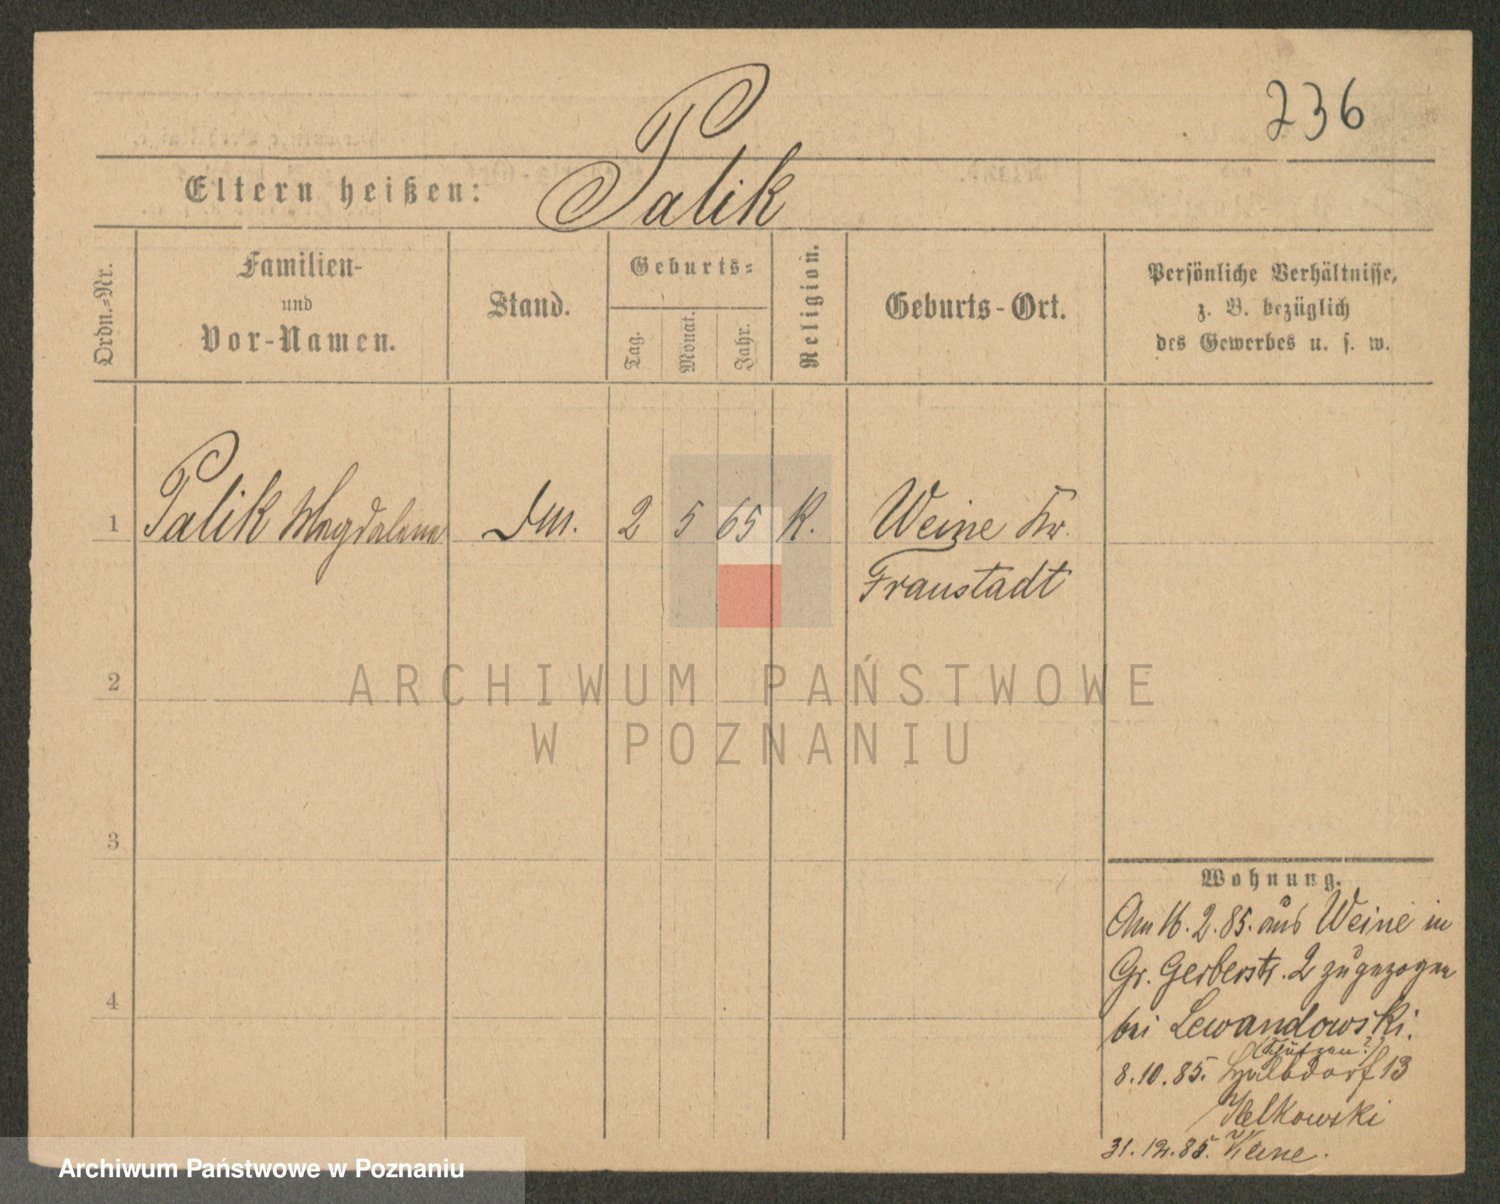 236
Eltern heißen: Palik
Ordn.-Nr.
Familien-
und
Vor-Namen.
Stand.
Geburts-
Tag.
Monat.
Jahr.
Religion.
Geburts-Ort.
Persönliche Verhältnisse,
z. B. bezüglich
des Gewerbes u. s. w.
1 Palik Magdalena 2 5 65 K. Weine Kr.
Fraustadt
2
ARCHIWUM PAŃSTWOWE
W POZNANIU
3
Wohnung.
Am 16. 2. 85. aus Weine in
Gr. Gerberstr. 2 zugezogen
4
bei Lewandowski.
(Schützen?)
8.10.85. Halbdorf 13
31.12.85.
Archiwum Państwowe w Poznaniu